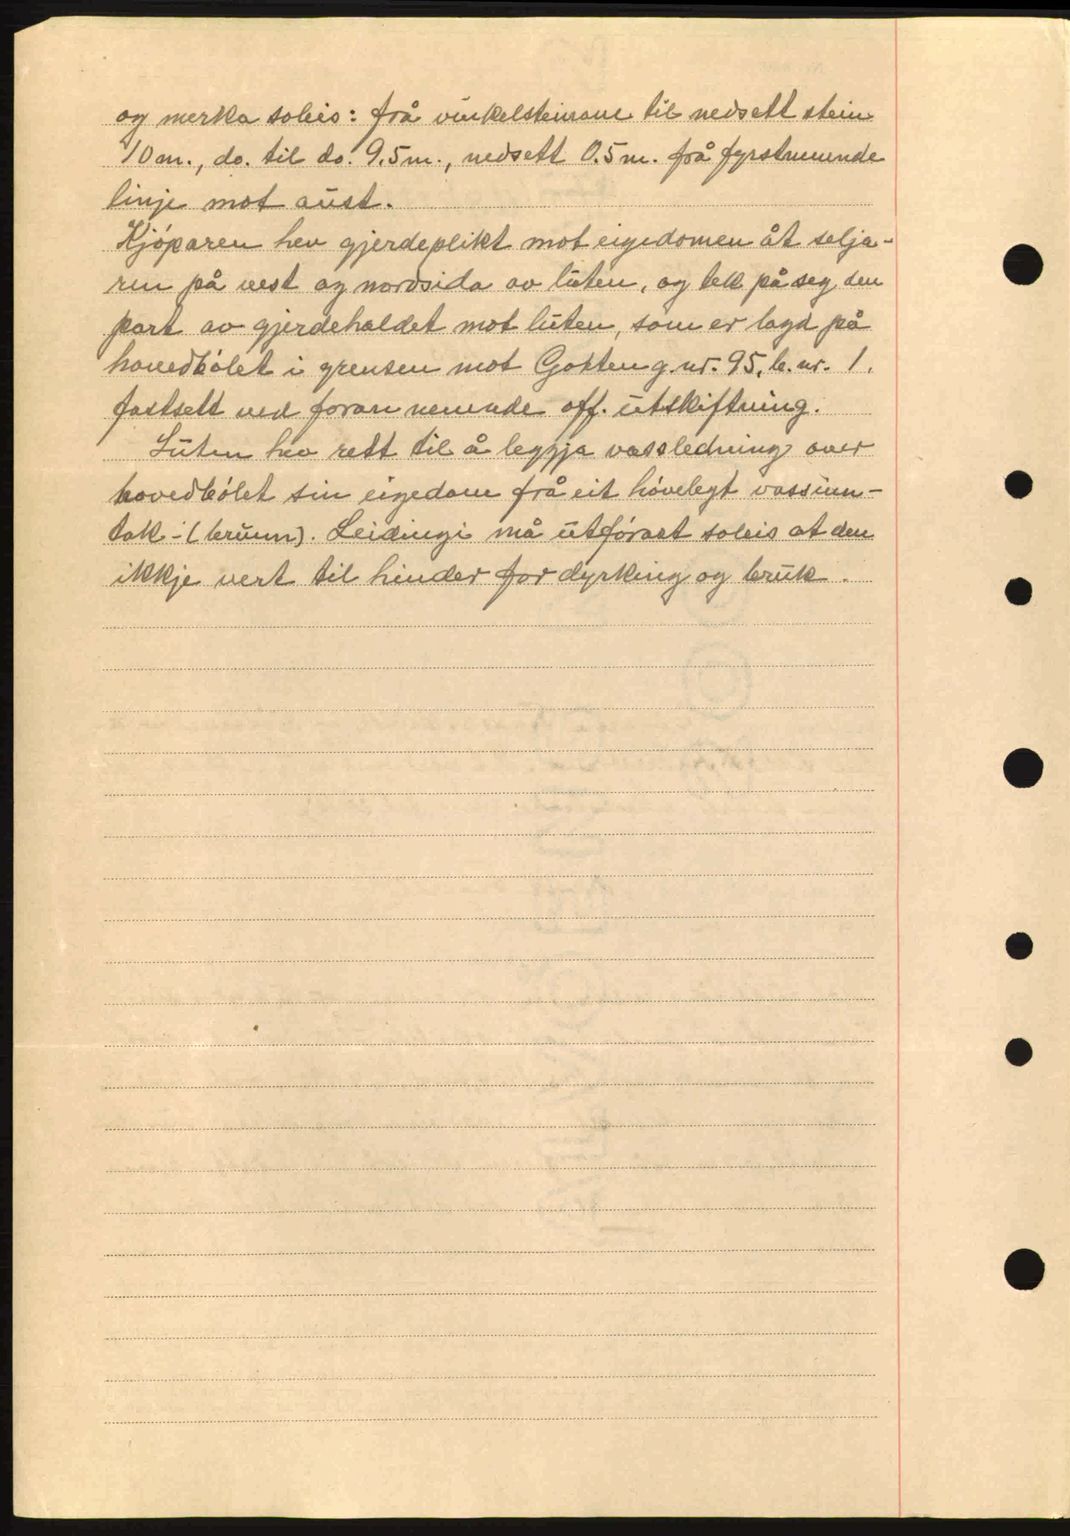 og merka soleis: frå vinkelsteinane til nedsett stein
10 m., do. til do. 9.5 m., nedsett 0.5 m. frå fyrstnemnde
linje mot aust.
Kjøparen hev gjerdeplikt mot eigedomen åt selja-
ren på vest og nordsida av luten, og tek på seg den
part av gjerdehaldet mot luten, som er lagd på
hovedbólet i grensen mot g.nr. 95, b.nr. 1.
fastsett ved foran nemnde off. utskiftning.
Luten hev rett til å leggja vassledning over
hovedbólet sin eigedom frå eit hóvelegt vassinn-
tak - (brunn). Leidingi må utfórast soleis at den
ikkje vert til hinder for dyrking og bruk.